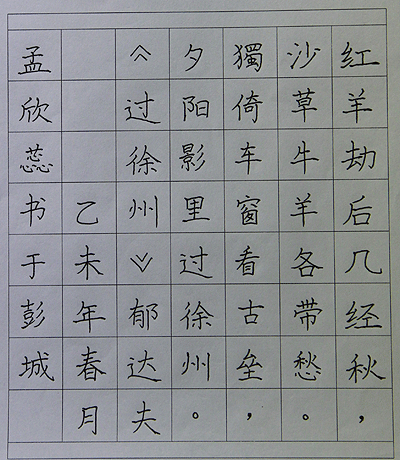 红羊劫后几经秋，
沙草牛羊各带愁。
獨倚车窗看古垒，
夕阳影里过徐州。
《过徐州》郁达夫
乙未年春月
孟欣蕊书于彭城